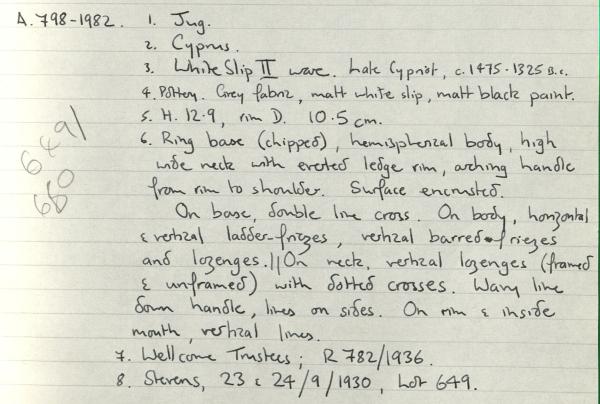 A. 798-1982. 1. Jug.
2. Cyprus.
3. White Slip II ware. Late Cypriot, c. 1475-1325 B.C.
4. Pottery. Grey fabric, matt white slip, matt black paint.
5. H. 12.9, rim D. 10.5 cm.
6. Ring base (chipped), hemispherical body, high
wide neck with everted ledge rim, arching handle
from rim to shoulder. Surface encrusted.
On base, double line cross. On body, horizontal
& vertical ladder-friezes, vertical barred friezes
and lozenges. || On neck, vertical lozenges (framed
& unframed) with dotted crosses. Wavy line
down handle, lines on sides. On rim & inside
mouth, vertical lines.
7. Wellcome Trustees; R 782/1936.
8. Stevens, 23 & 24/9/1930, Lot 649.
649/
660